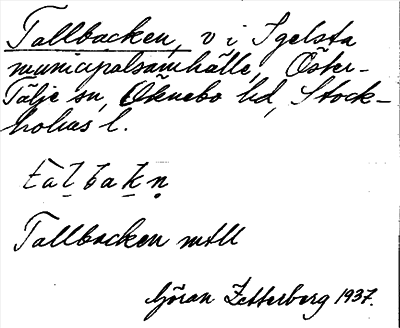 Tallbacken, v i Igelsta
municipalsamhälle, Öster-
Tälje sn, Öknebo hd, Stock-
holms l.
tal̯bakn̥
Tallbacken mtll
Göran Zetterberg 1937.